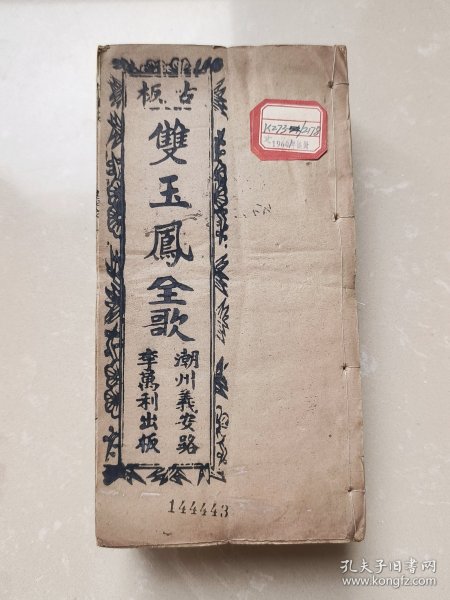 古板
雙玉鳳全歌
潮州義安路
李萬利出板
144443
孔夫子旧书网
www.kongfz.com